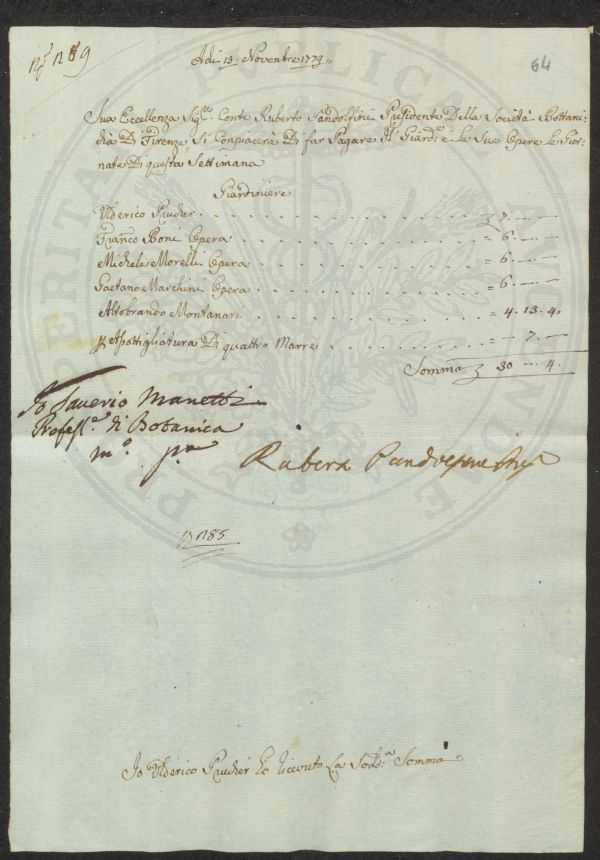 N.º 1289
64
Adi 13. Novembre 1779
Sua Eccellenza Sig.re Conte Ruberto Pandolfini Presidente Della Società Bottani
Di Firenze Si Conpiacerà Di far Pagare Il Giard.e e Le Sue Opere Le Gior-
nate Di questa Settimana
Giardiniere
Ulderico Prucher . . . £ 7. — —
Franco Boni Opera . . . = 6. — —
Michele Morelli Opera . . . = 6. — —
Gaetano Marchini Opera . . . = 6. — —
Altobrando Montanari . . . = 4. 13. 4
Di quattro Marre . . . = — 7. —
Somma £ 30 — 4.
Io Saverio Manetti
Profess.e di Botanica
m.o p.a
Rubero Pandolfini
1285
Io Ulderico Prucher Ho ricevuto La Sud.a Somma
PROSPERITATI PUBLICAE AUGENDAE